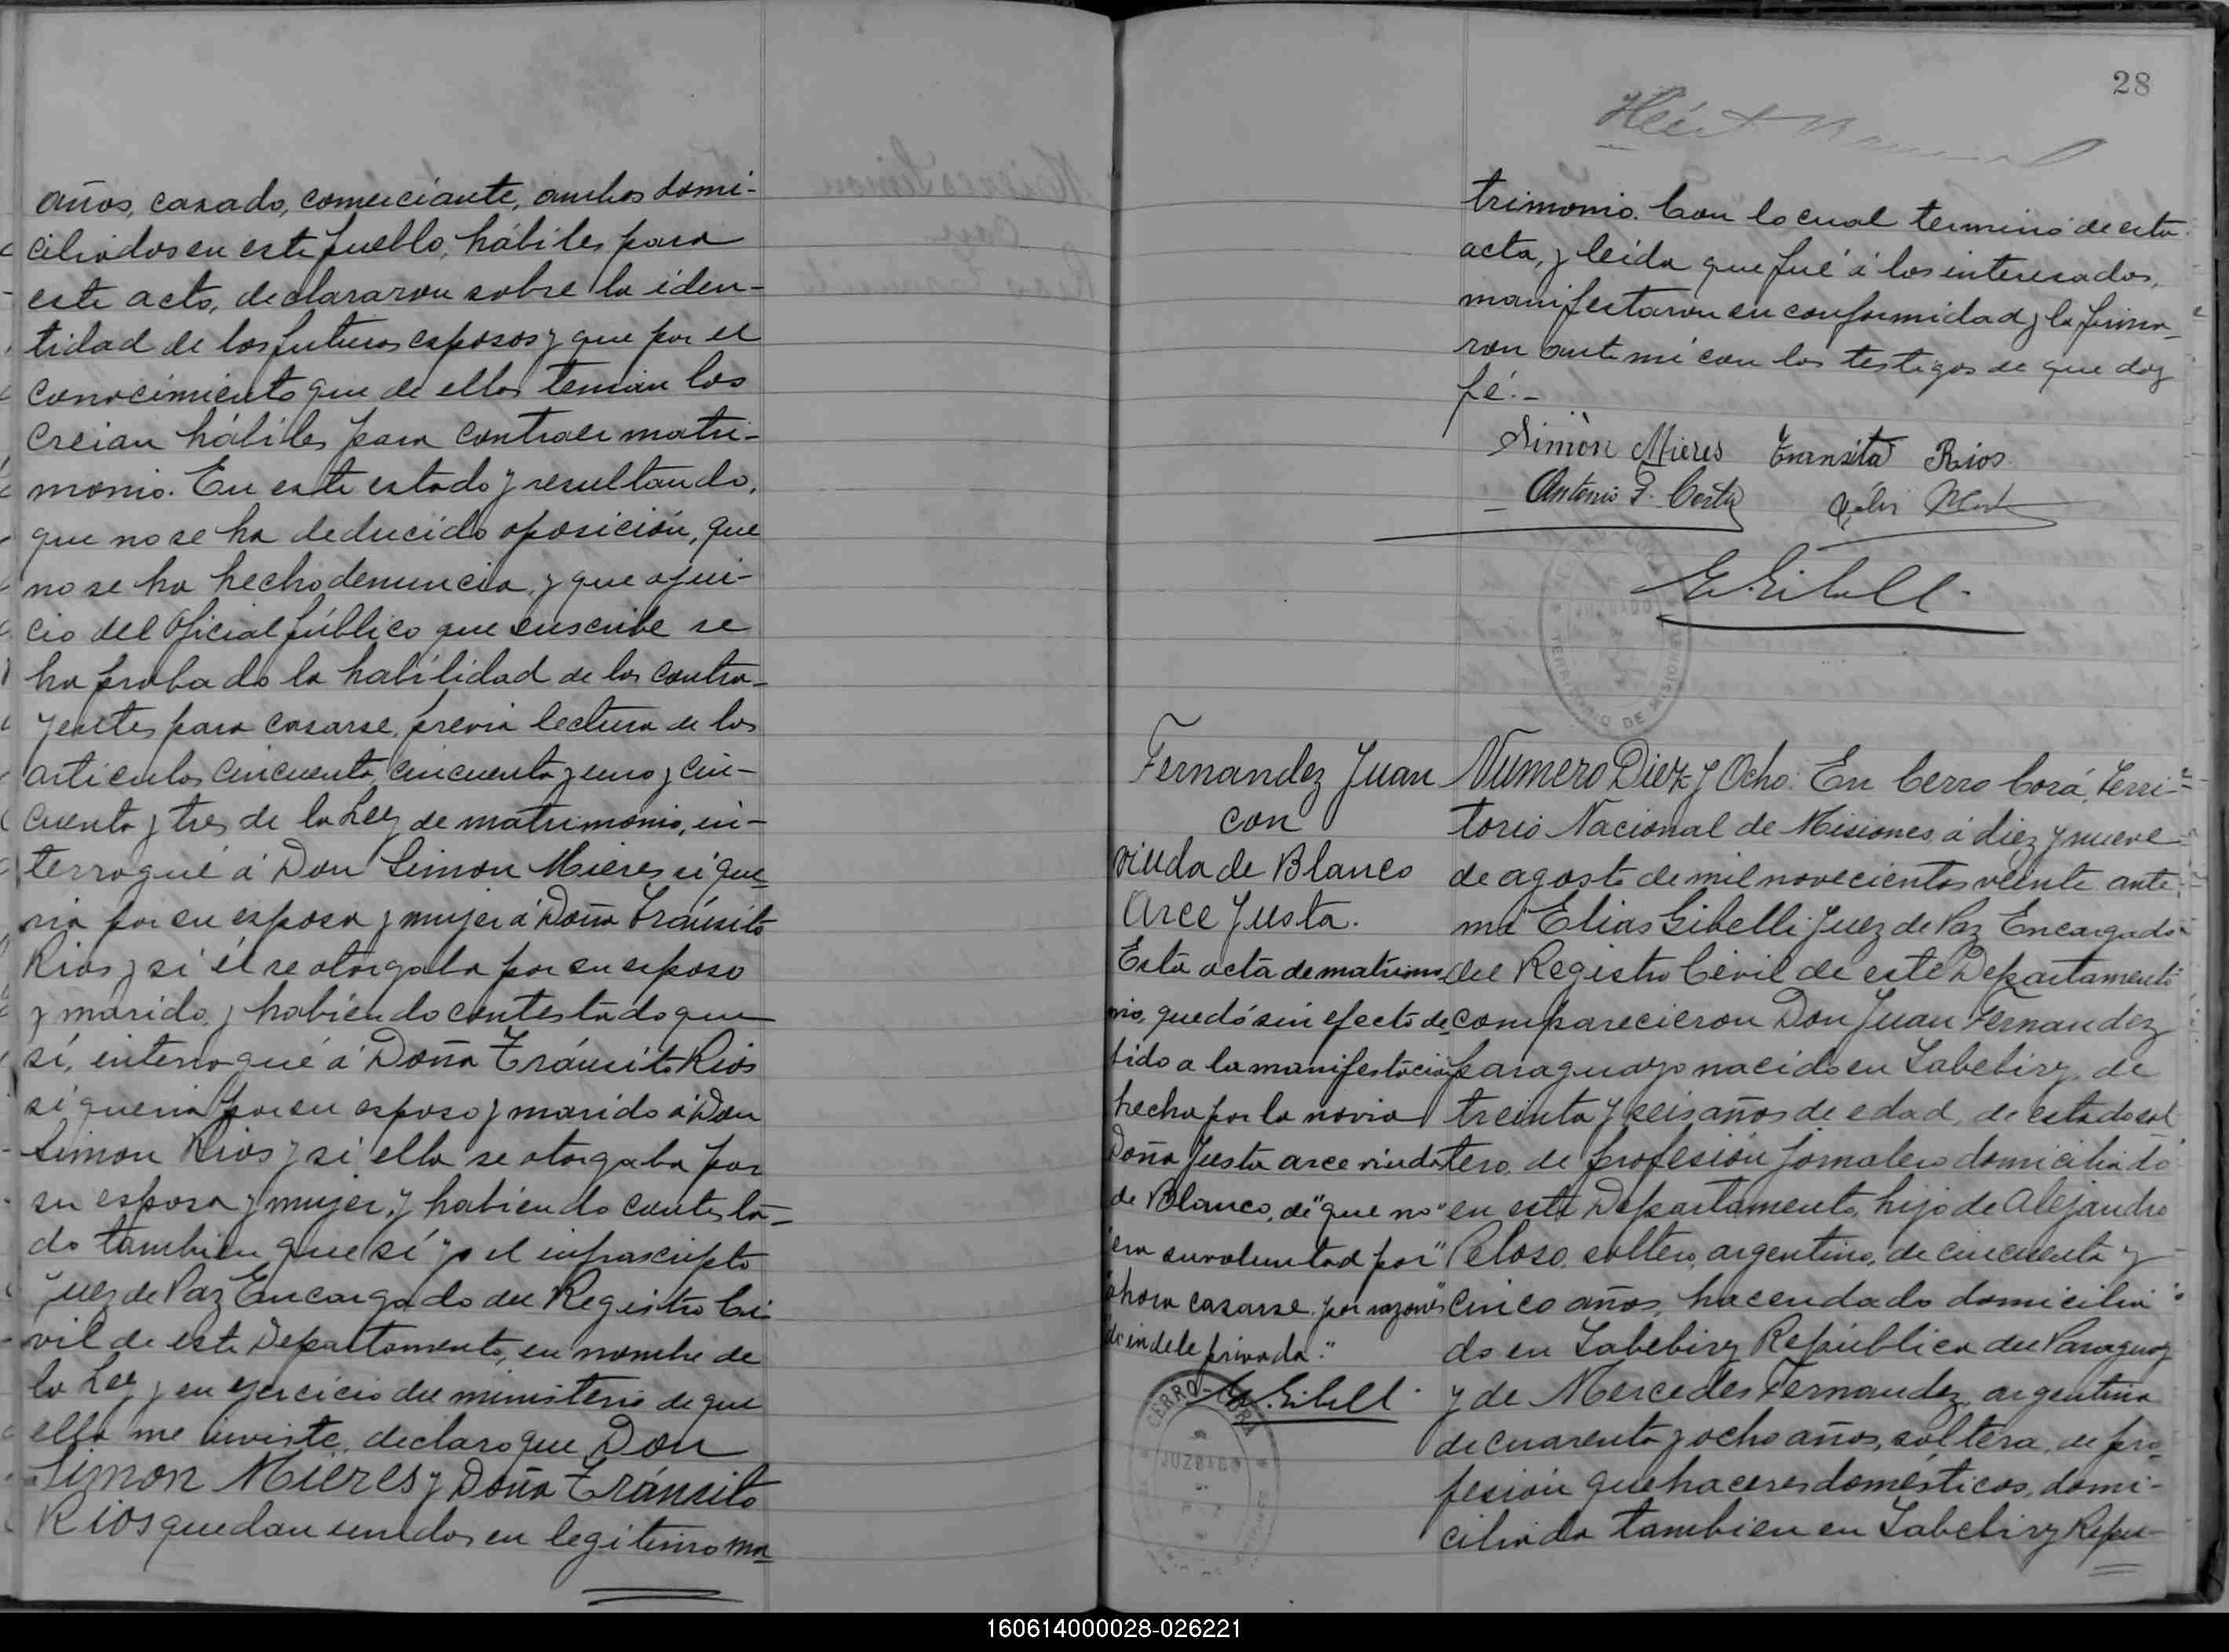 años, casado, comerciante, ambos domi-
ciliados en este pueblo, hábiles para
este acto, declararon sobre la iden-
tidad de los futuros esposos y que por el
conocimiento que de ellos tenían los
creian hábiles para contraer matri-
monio. En este estado y resultando,
que no se ha deducido oposición, que
no se ha hecho denuncia, y que ajui-
cio del Oficial público que suscribe se
ha probado la habilidad de los contra-
yentes para casarse, previa lectura de los
articulos cincuenta, cincuenta y uno y cin-
cuenta y tres de la Ley de matrimonio, in-
terrogué á Don Simon Mieres si que-
ria por su esposa y mujer á Doña Tránsito
Rios y si él se otorgaba por su esposo
y marido, y habiendo contestado que
sí, interrogué á Doña Tránsito Rios
si queria por su esposo y marido á Don
Simon Rios y si ella se otorgaba por
su esposa y mujer, y habiendo contesta-
do tambien que sí yo el infrascripto
Juez de Paz Encargado del Registro Ci-
vil de este Departamento, en nombre de
la Ley y en ejercicio del ministerio de que
ella me inviste, declaro que Don
Simon Mieres y Doña Tránsito
Rios quedan unidos en legítimo ma-
28
trimonio. Con lo cual terminó de esta
acta, y leída que fué á los interesados,
manifestaron su conformidad y la firma-
ron ante mí con los testigos de que doy
fé.-
Simòn Mieres Transita Rios
Antonio F. Costa
E. Gibelli
TERRITORIO DE MISIONES
Fernandez Juan
con
viuda de Blanco
Arce Justa.
Esta acta de matrimo
nio, quedó sin efecto de
bido a la manifestación
hecha por la novia
Doña Justa Arce viuda
de Blanco, de "que no"
"era su voluntad por"
"ahora casarse por razones"
"de indole privada."
E. Gibelli
CERRO-CORA
JUZGADO
Numero Diez y Ocho: En Cerro Corá, Terri-
torio Nacional de Misiones, á diez y nueve
de agosto de mil novecientos veinte ante
mí Elias Gibelli Juez de Paz Encargado
del Registro Civil de este Departamento
comparecieron Don Juan Fernandez
paraguayo nacido en Tabebiry, de
treinta y seis años de edad, de estado sol
tero, de profesión jornalero domiciliado
en este Departamento, hijo de Alejandro
Peloso, soltero, argentino, de cincuenta y
cinco años, hacendado domicilia
do en Tabebiry República del Paraguay
y de Mercedes Fernandez, argentina
de cuarenta y ocho años, soltera, de pro-
fesión quehaceres domésticos, domi-
ciliada tambien en Tabebiry Repu-
160614000028-026221